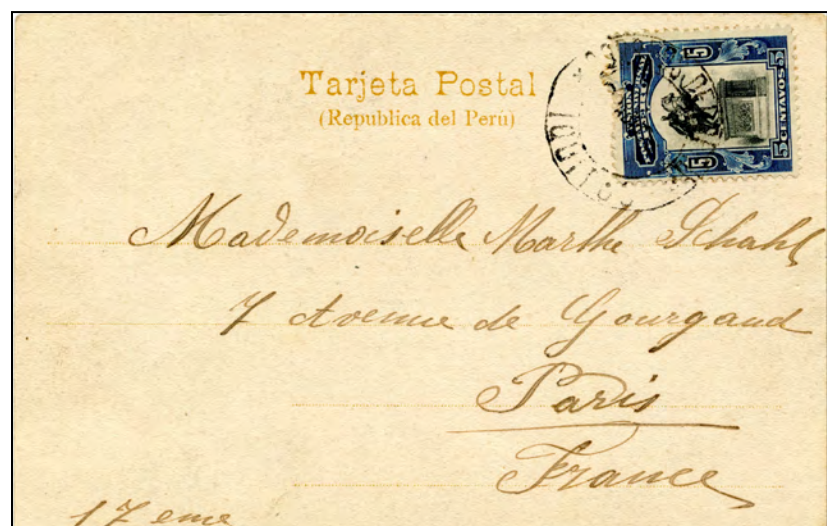 Tarjeta Postal
(Republica del Perú)
5 5
5 CENTAVOS 5
Mademoiselle Marthe Schahl
7 Avenue de Gourgaud
Paris
France
17 eme